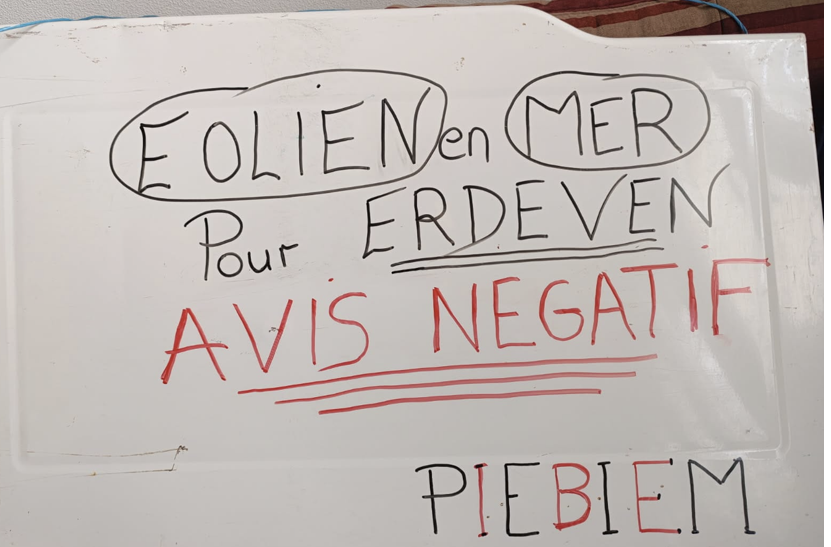 EOLIEN en MER
Pour ERDEVEN
AVIS NEGATIF
PIEBIEM